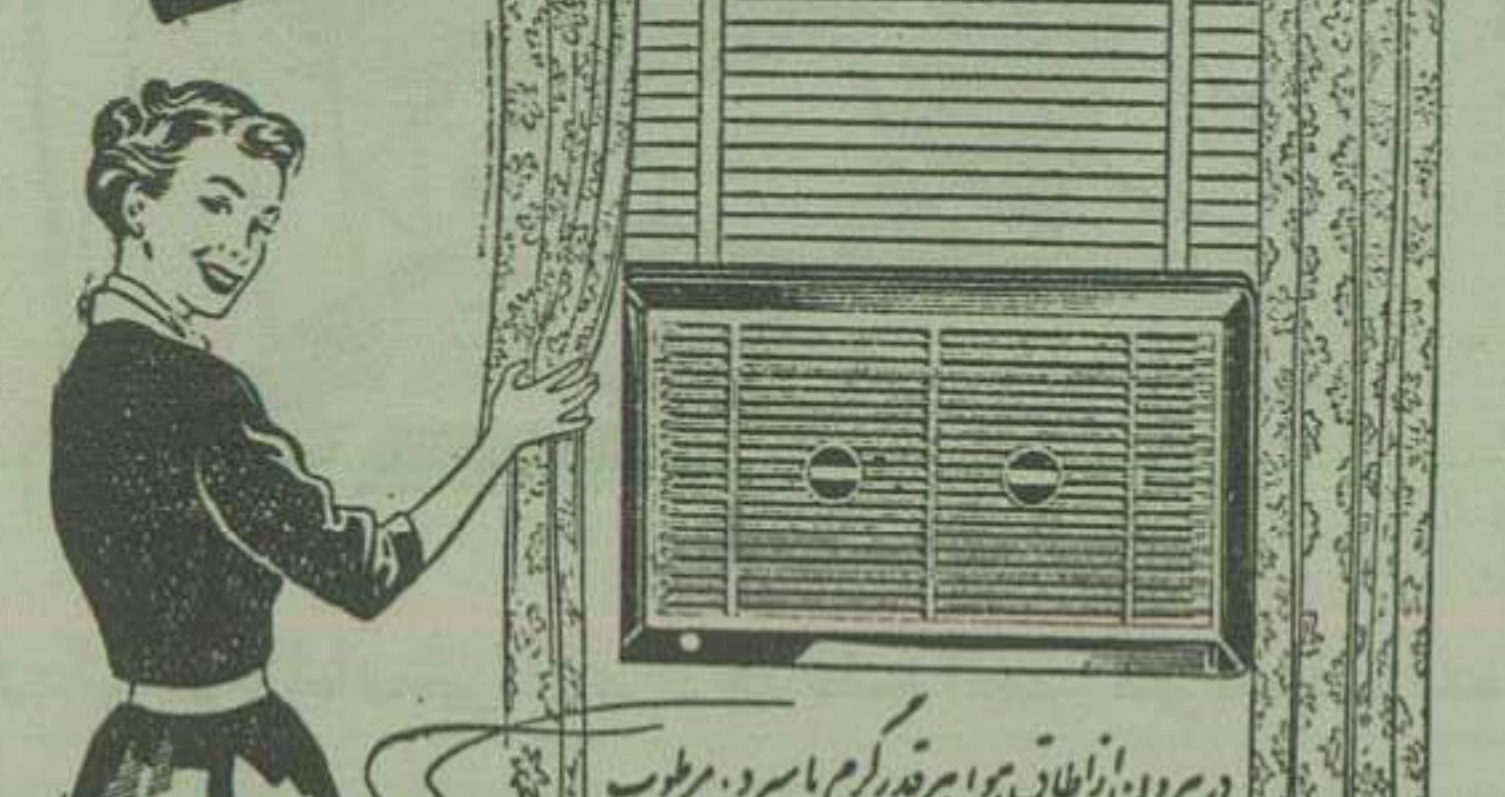 در بیرون از اطاق هوا هر قدر گرم یا سرد، مرطوب